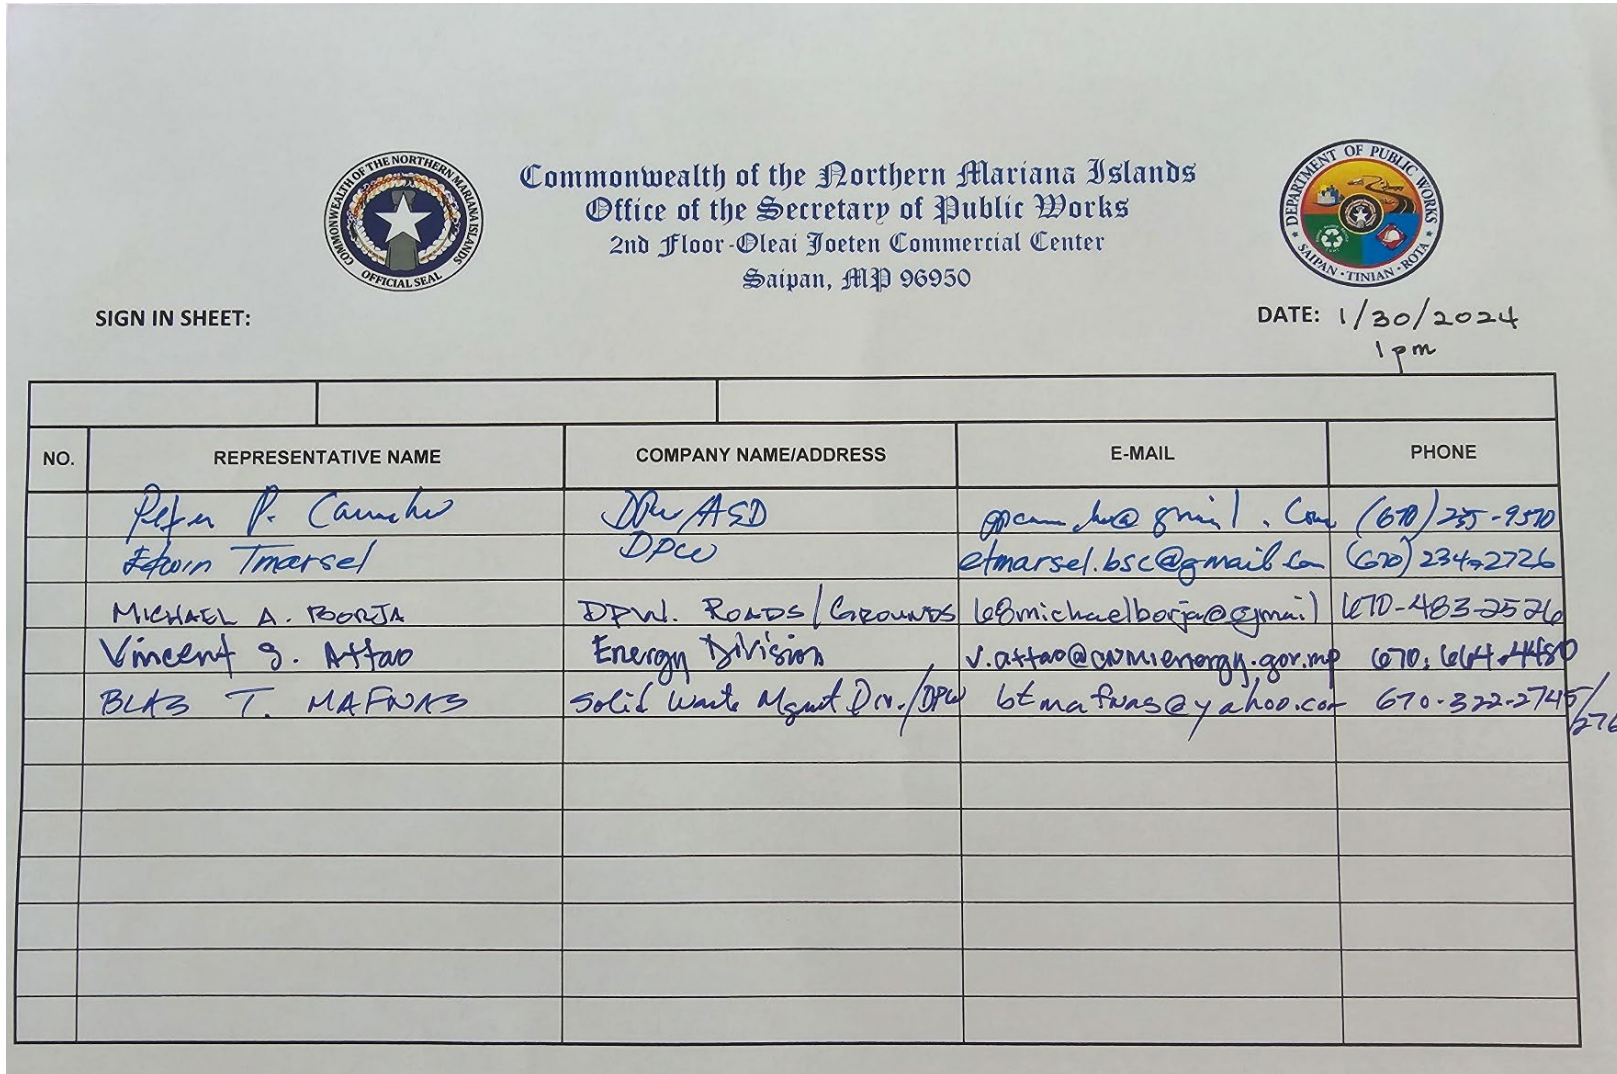 COMMONWEALTH OF THE NORTHERN MARIANA ISLANDS
OFFICIAL SEAL
Commonwealth of the Northern Mariana Islands
Office of the Secretary of Public Works
2nd Floor-Oleai Joeten Commercial Center
Saipan, MP 96950
DEPARTMENT OF PUBLIC WORKS
SAIPAN · TINIAN · ROTA
SIGN IN SHEET:
DATE: 1/30/2024
1pm
NO. REPRESENTATIVE NAME COMPANY NAME/ADDRESS E-MAIL PHONE
P. Camacho DPW/ASD @gmail.com (670)235-9570
Edwin Tmarsel DPW etmarsel.bsc@gmail.com (670)234-2726
MICHAEL A. BORJA DPW. ROADS/GROUNDS 68michaelborja@gmail 670-483-2526
Vincent S. Attao Energy Division v.attao@cnmienergy.gov.mp 670.664.4480
BLAS T. MAFNAS Solid Waste Mgmt Div./DPW btmafnas@yahoo.com 670-322-2745/276